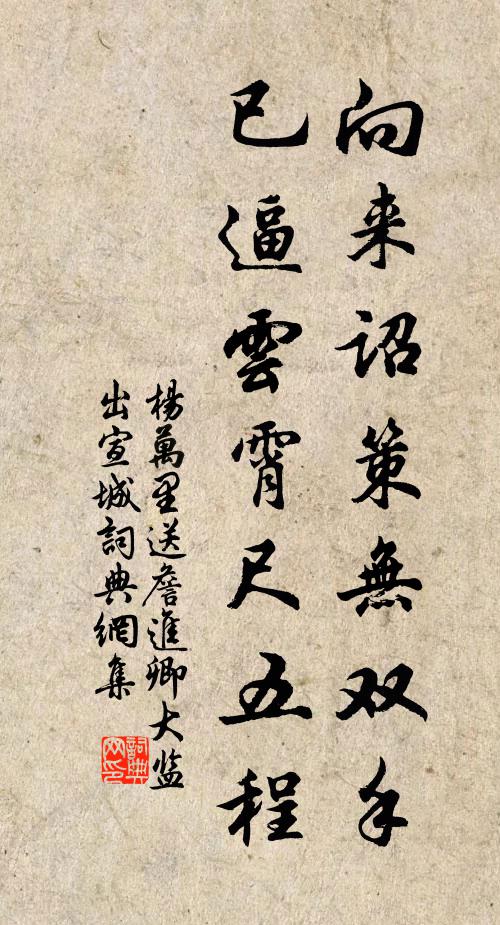 向来詔策無双手
已逼雲霄尺五程
楊萬里送詹進卿大监
出宣城詞典網集
詞典網印